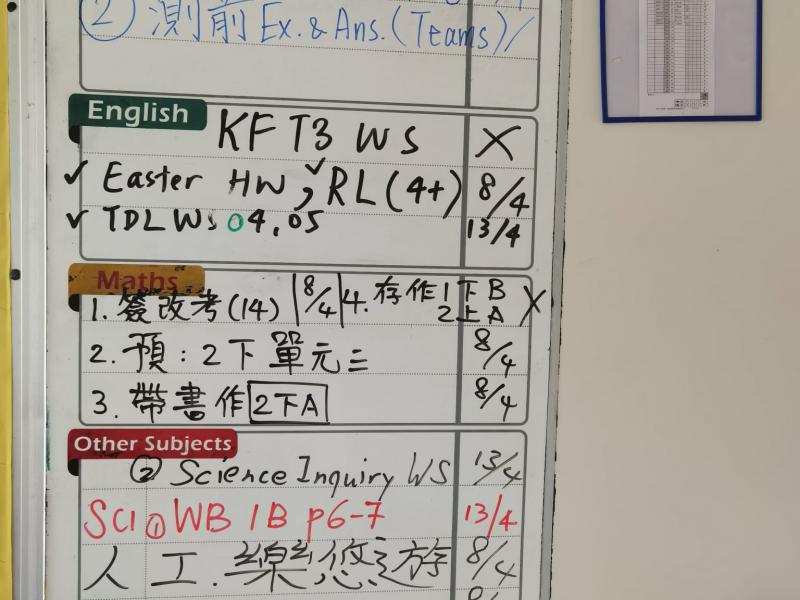 ② 測前 Ex. & Ans. (Teams)/
English
KF T3 WS X
✓ Easter HW, ✓RL (4+) 8/4
✓ TDL WS 04, 05 13/4
Maths
1.簽改考(14) | 8/4 | 4. 存作 1下B X
2上A
2. 預: 2下單元三 8/4
3. 帶書作 2下A 8/4
Other Subjects
② Science Inquiry WS 13/4
SCI ① WB 1B p6-7 13/4
人工. 樂悠遊 8/4